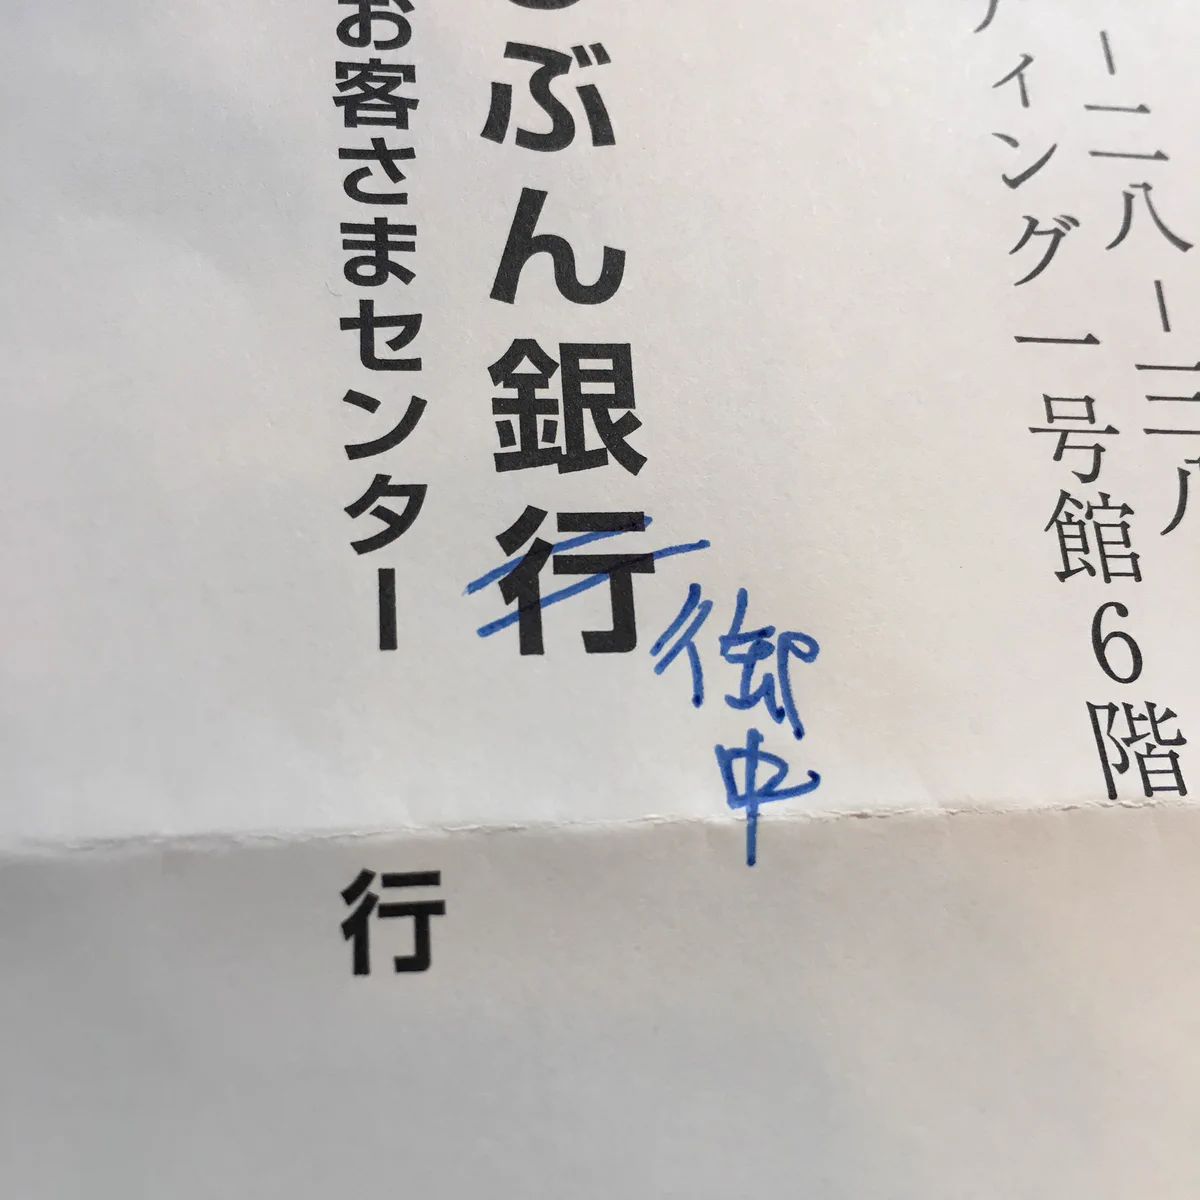 －二八－三八
ィング一号館6階
ぶん銀行
御中
お客さまセンター
行